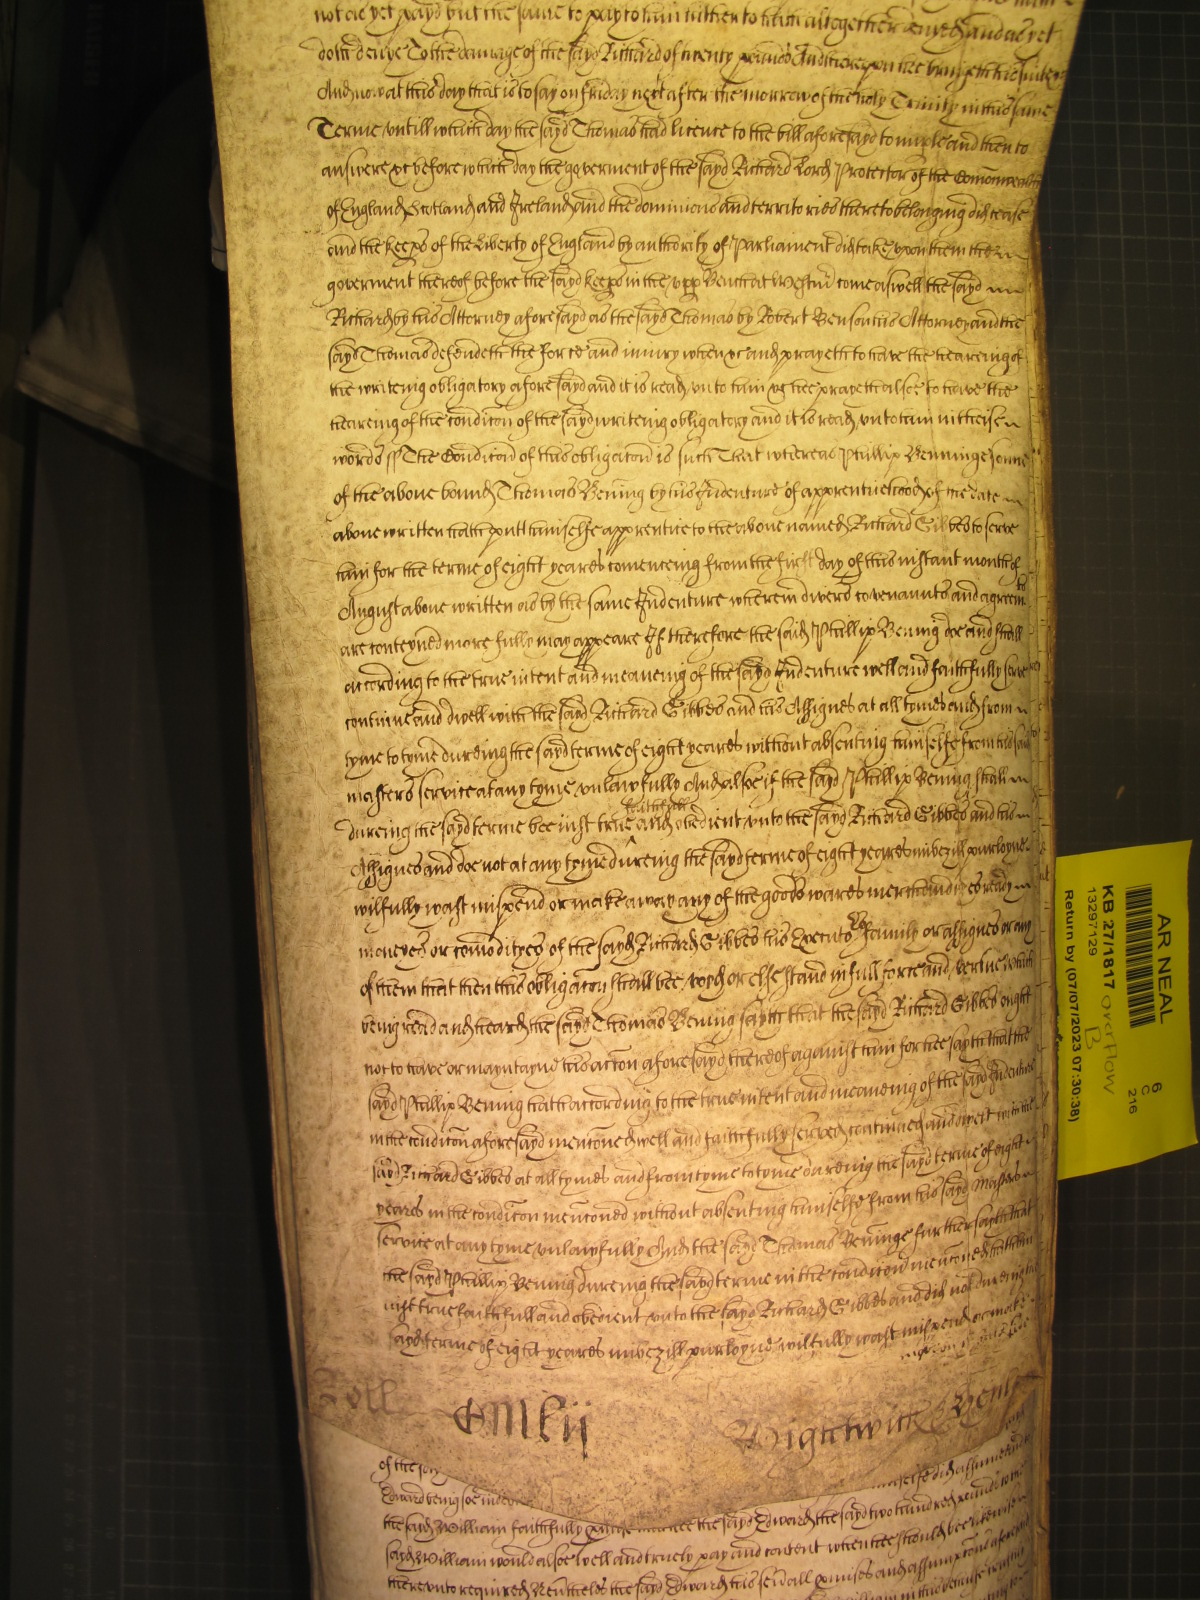 not as yet payd but the same to pay to him hither to hath altogether denyed and as yet
doth denye To the damage of the sayd Richard of twenty pounds And thereupon he bringeth his suite
And now at this day that is to say on friday next after the morrow of the holy Trinity in this same
Terme untill which day the sayd Thomas had licence to the bill aforesayd to imple and then to
answere &c before which day the goverment of the sayd Richard Lord Protector of the Comonwealth
of England Scotland and Ireland and the dominions and territories thereto belonging did cease
and the keeps of the liberty of England by authority of Parliament did take upon them the
goverment thereof before the sayd keeps in the upp Bench at Westm come aswell the sayd
Richard by his Attorney aforesayd as the sayd Thomas by Robert Benson his Attorney and the
sayd Thomas defendeth the force and iniury when &c and prayeth to have the heareing of
the writeing obligatory aforesayd and it is read unto him &c hee prayeth alsoe to have the
heareing of the condicon of the sayd writeing obligatory and it is read unto him in theise
words ss The Condicon of this obligacon is such That whereas Phillip Benninge sonne
of the above bound Thomas Bening by his Indenture of apprenticehood of the date
above written hath putt himselfe apprentice to the above named Richard Gibbes to serve
him for the terme of eight yeares comenceing from the first day of this instant month of
August above written as by the same Indenture wherein divers covenaunts and agreemts
are conteyned more fully may appeare If therefore the said Phillip Bening doe and shall
according to the true intent and meaneing of the sayd Indenture well and faithfully serve
continue and dwell with the sayd Richard Gibbes and his Assignes at all tymes and from
tyme to tyme dureing the sayd terme of eight yeares without absenting himselfe from his said
masters service at any tyme unlawfully And alsoe if the sayd Phillip Bening shall
dureing the sayd terme bee iust true faithfull and obedient unto the sayd Richard Gibbes and his
Assignes and doe not at any tyme dureing the sayd terme of eight yeares imbezill purloyne
wilfully wast mispend or make away any of the goods wares merchandizes ready
moneyes or comodityes of the sayd Richard Gibbes his Executors family or assignes or any
of them that then this obligacon shall bee voyd or else stand in full force and vertue Which
being read and heard the sayd Thomas Bening sayth that the sayd Richard Gibbes ought
not to have or mayntayne his accon aforesayd thereof against him for hee sayth that the
sayd Phillip Bening hath according to the true intent and meaneing of the sayd Indenture
in the condicon aforesayd menconed well and faithfully served continued and dwelt with the
sayd Richard Gibbes at all tymes and from tyme to tyme dureing the sayd terme of eight
yeares in the condicon menconed without absenting himselfe from his sayd Masters
service at any tyme unlawfully And the sayd Thomas Beninge further sayth that
the sayd Phillip Bening dureing the sayd terme in the condicon menconed hath bin
iust true faithfull and obedient unto the sayd Richard Gibbes and did not dureing the
sayd terme of eight yeares imbezill purloyne wilfully wast mispend or make
Roll
CMlii
Wightwick
of the
himselfe did assume and
Edward being soe
the sayd William faithfully the sayd Edward the sayd two hundred pounds
sayd William would alsoe well and truely pay and content when hee should bee likewise
thereunto required Neverthelesse the sayd Edward his sevall pmises and assumpcons aforesayd
AR NEAL
KB 27/1817 overflow
B
13297129
Return by (07/07/2023 07:30:38)
6
C
216